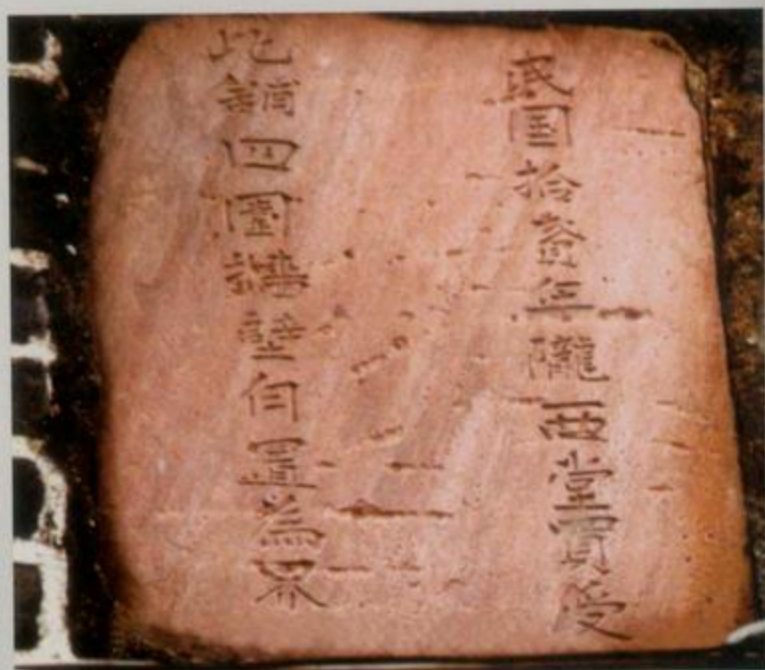 民国拾貳年隴西堂買受
此舖四圍墻壁自置為界